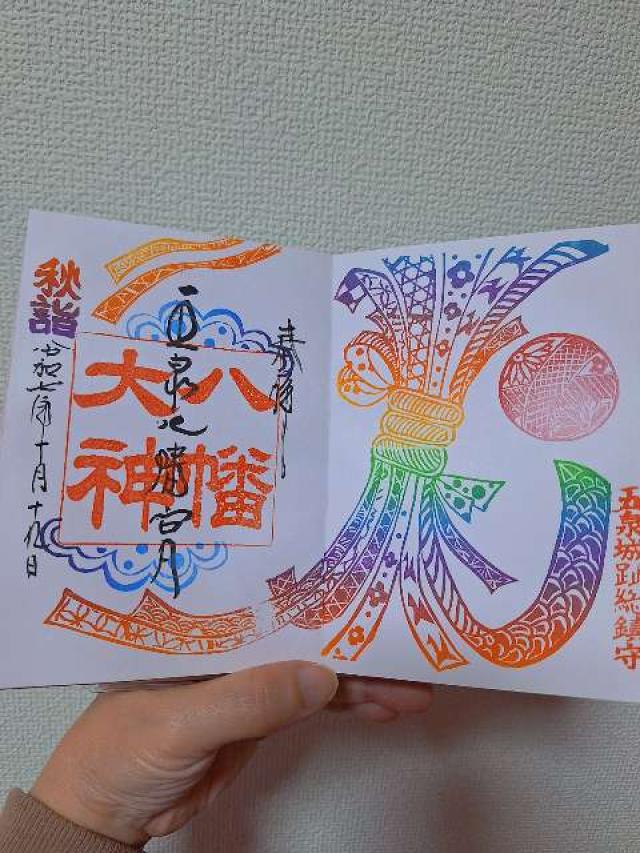 五泉城趾総鎮守
奉拝
八幡
大神
五泉八幡宮
秋詣
令和七年十月十九日